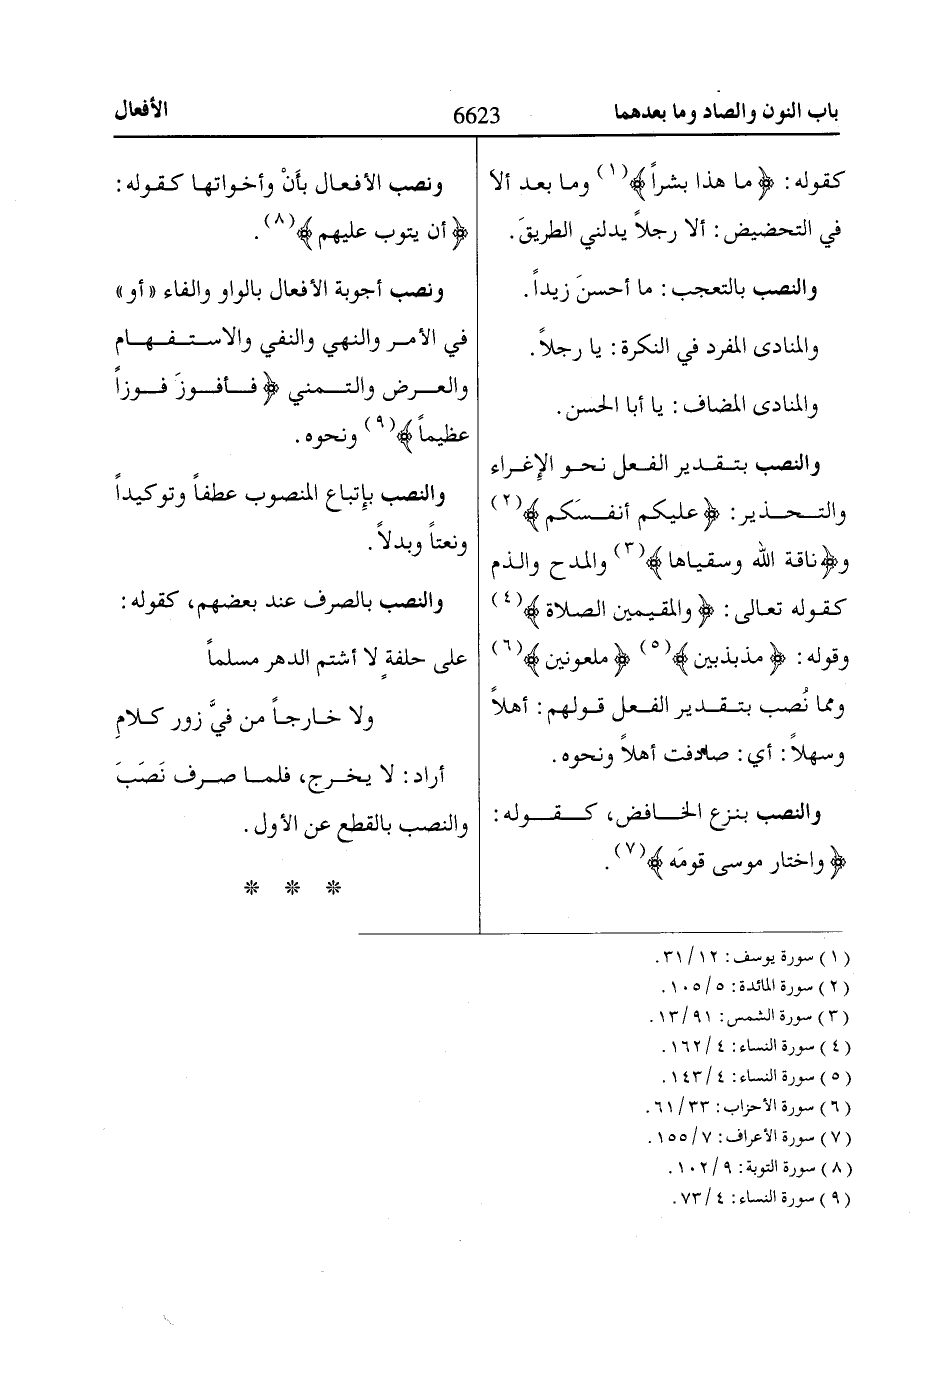 باب النون والصاد وما بعدهما 6623 الأفعال
كقوله: ﴿ ما هذا بشراً ﴾(١) وما بعد ألا
في التحضيض: ألا رجلاً يدلني الطريقَ.
والنصب بالتعجب: ما أحسنَ زيداً.
والمنادى المفرد في النكرة: يا رجلاً.
والمنادى المضاف: يا أبا الحسن.
والنصب بتقدير الفعل نحو الإغراء
والتحذير: ﴿ عليكم أنفسَكم ﴾(٢)
و﴿ناقة الله وسقياها ﴾(٣) والمدح والذم
كقوله تعالى: ﴿ والمقيمين الصلاة ﴾(٤)
وقوله: ﴿ مذبذبين ﴾(٥) ﴿ ملعونين ﴾(٦)
ومما نُصب بتقدير الفعل قولهم: أهلاً
وسهلاً: أي: صادفت أهلاً ونحوه.
والنصب بنزع الخافض، كقوله:
﴿ واختار موسى قومَه ﴾(٧).
ونصب الأفعال بأنْ وأخواتها كقوله:
﴿ أن يتوب عليهم ﴾(٨).
ونصب أجوبة الأفعال بالواو والفاء «أو»
في الأمر والنهي والنفي والاستفهام
والعرض والتمني ﴿ فأفوزَ فوزاً
عظيماً ﴾(٩) ونحوه.
والنصب بإتباع المنصوب عطفاً وتوكيداً
ونعتاً وبدلاً.
والنصب بالصرف عند بعضهم، كقوله:
على حلفةٍ لا أشتم الدهر مسلماً
ولا خارجاً من فيَّ زور كلامِ
أراد: لا يخرج، فلما صرف نَصَبَ
والنصب بالقطع عن الأول.
* * *
(١) سورة يوسف: ٣١/١٢.
(٢) سورة المائدة: ١٠٥/٥.
(٣) سورة الشمس: ١٣/٩١.
(٤) سورة النساء: ١٦٢/٤.
(٥) سورة النساء: ١٤٣/٤.
(٦) سورة الأحزاب: ٦١/٣٣.
(٧) سورة الأعراف: ١٥٥/٧.
(٨) سورة التوبة: ١٠٢/٩.
(٩) سورة النساء: ٧٣/٤.